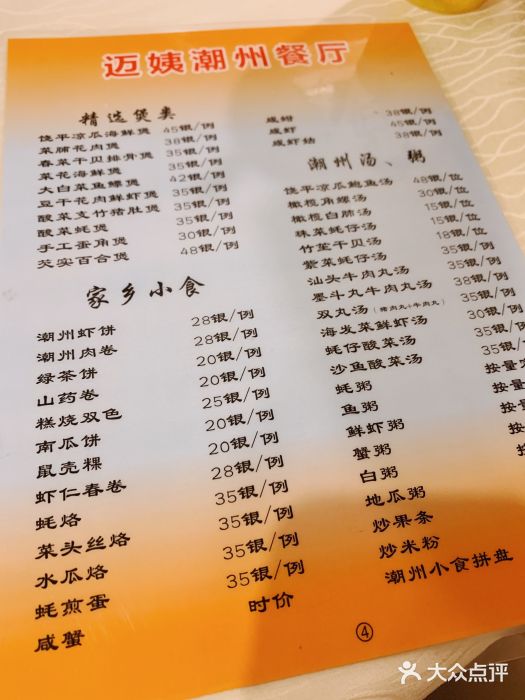 迈姨潮州餐厅
精选煲类
饶平凉瓜海鲜煲 45银/例
菜脯花肉煲 38银/例
春菜干贝排骨煲 35银/例
菜花海鲜煲 35银/例
大白菜鱼鳔煲 42银/例
豆干花肉鲜虾煲 35银/例
酸菜支竹猪肚煲 35银/例
酸菜蚝煲 35银/例
手工蛋角煲 30银/例
芡实百合煲 48银/例
家乡小食
潮州虾饼 28银/例
潮州肉卷 28银/例
绿茶饼 20银/例
山药卷 20银/例
糕烧双色 25银/例
南瓜饼 20银/例
鼠壳粿 20银/例
虾仁春卷 28银/例
蚝烙 35银/例
菜头丝烙 35银/例
水瓜烙 35银/例
蚝煎蛋 35银/例
咸蟹 时价
咸蚶 38银/例
咸虾 45银/例
咸虾姑 38银/例
潮州汤、粥
饶平凉瓜鲍鱼汤 48银/位
橄榄角螺汤 30银/位
橄榄白肺汤 15银/位
珠菜蚝仔汤 15银/位
竹笙干贝汤 18银/位
紫菜蚝仔汤 35银/例
汕头牛肉丸汤 38银/例
墨斗丸牛肉丸汤 35银/例
双丸汤(猪肉丸+牛肉丸) 35银/
海发菜鲜虾汤 30银/
蚝仔酸菜汤 35银/
沙鱼酸菜汤 35银/
蚝粥 按量
鱼粥 按量
鲜虾粥 按量
蟹粥 按
白粥
地瓜粥
炒果条
炒米粉
潮州小食拼盘
④
大众点评